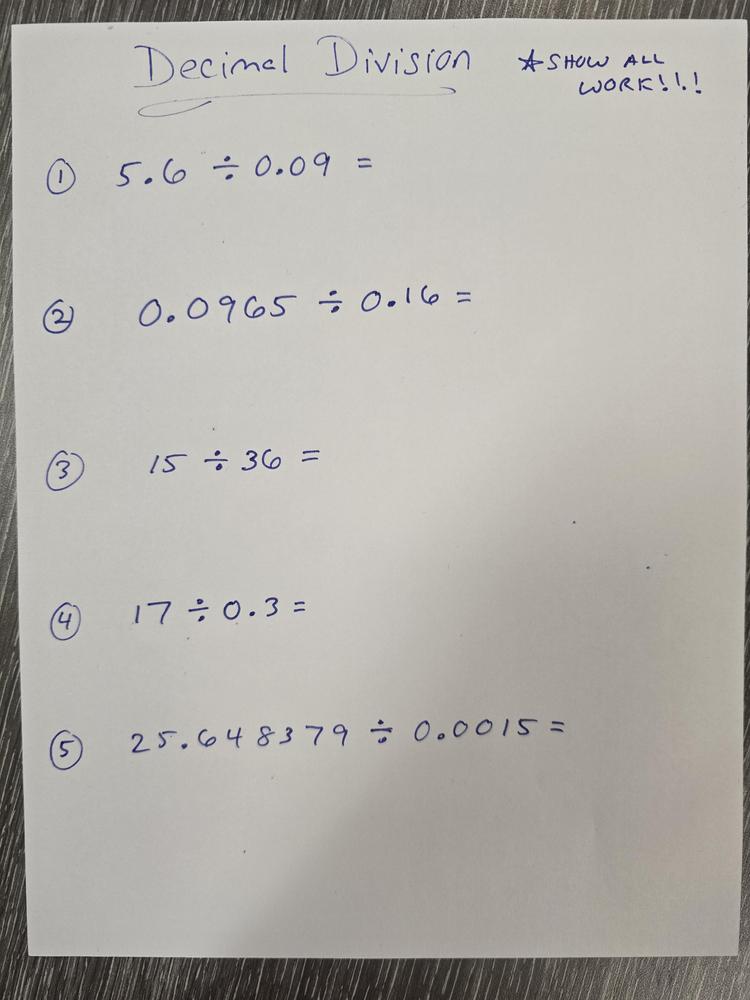 Decimal Division
★ SHOW ALL
WORK!!!
① 5.6 ÷ 0.09 =
② 0.0965 ÷ 0.16 =
③ 15 ÷ 36 =
④ 17 ÷ 0.3 =
⑤ 25.648379 ÷ 0.0015 =